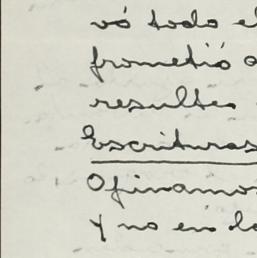 vó todo el
prometió a
resultes
Escrituras
Opinamos
y no en la